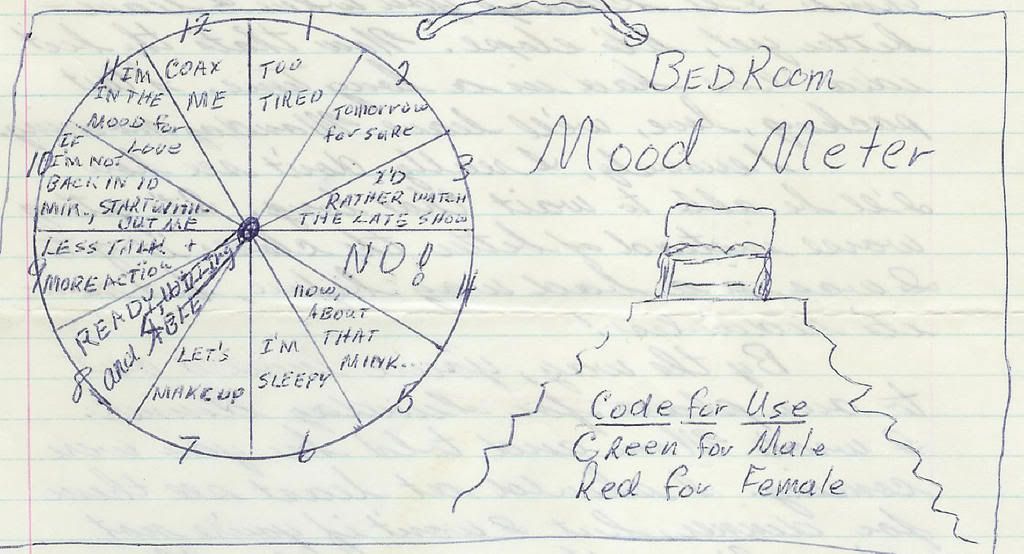 BEDRoom
Mood Meter
12
COAX
ME
1
TOO
TIRED
2
Tomorrow
for SURE
3
I'D
RATHER WATCH
THE LATE SHOW
4
NO!
5
NOW,
ABOUT
THAT
MINK...
6
I'M
SLEEPY
7
LET'S
MAKE UP
8
READY, Willing
and ABLE
9
LESS TALK +
MORE ACTION
10
IF
I'M NOT
BACK IN 10
MIN., START WITH-
OUT ME
11
I'M
IN THE
MOOD for
LOVE
Code for Use
Green for Male
Red for Female